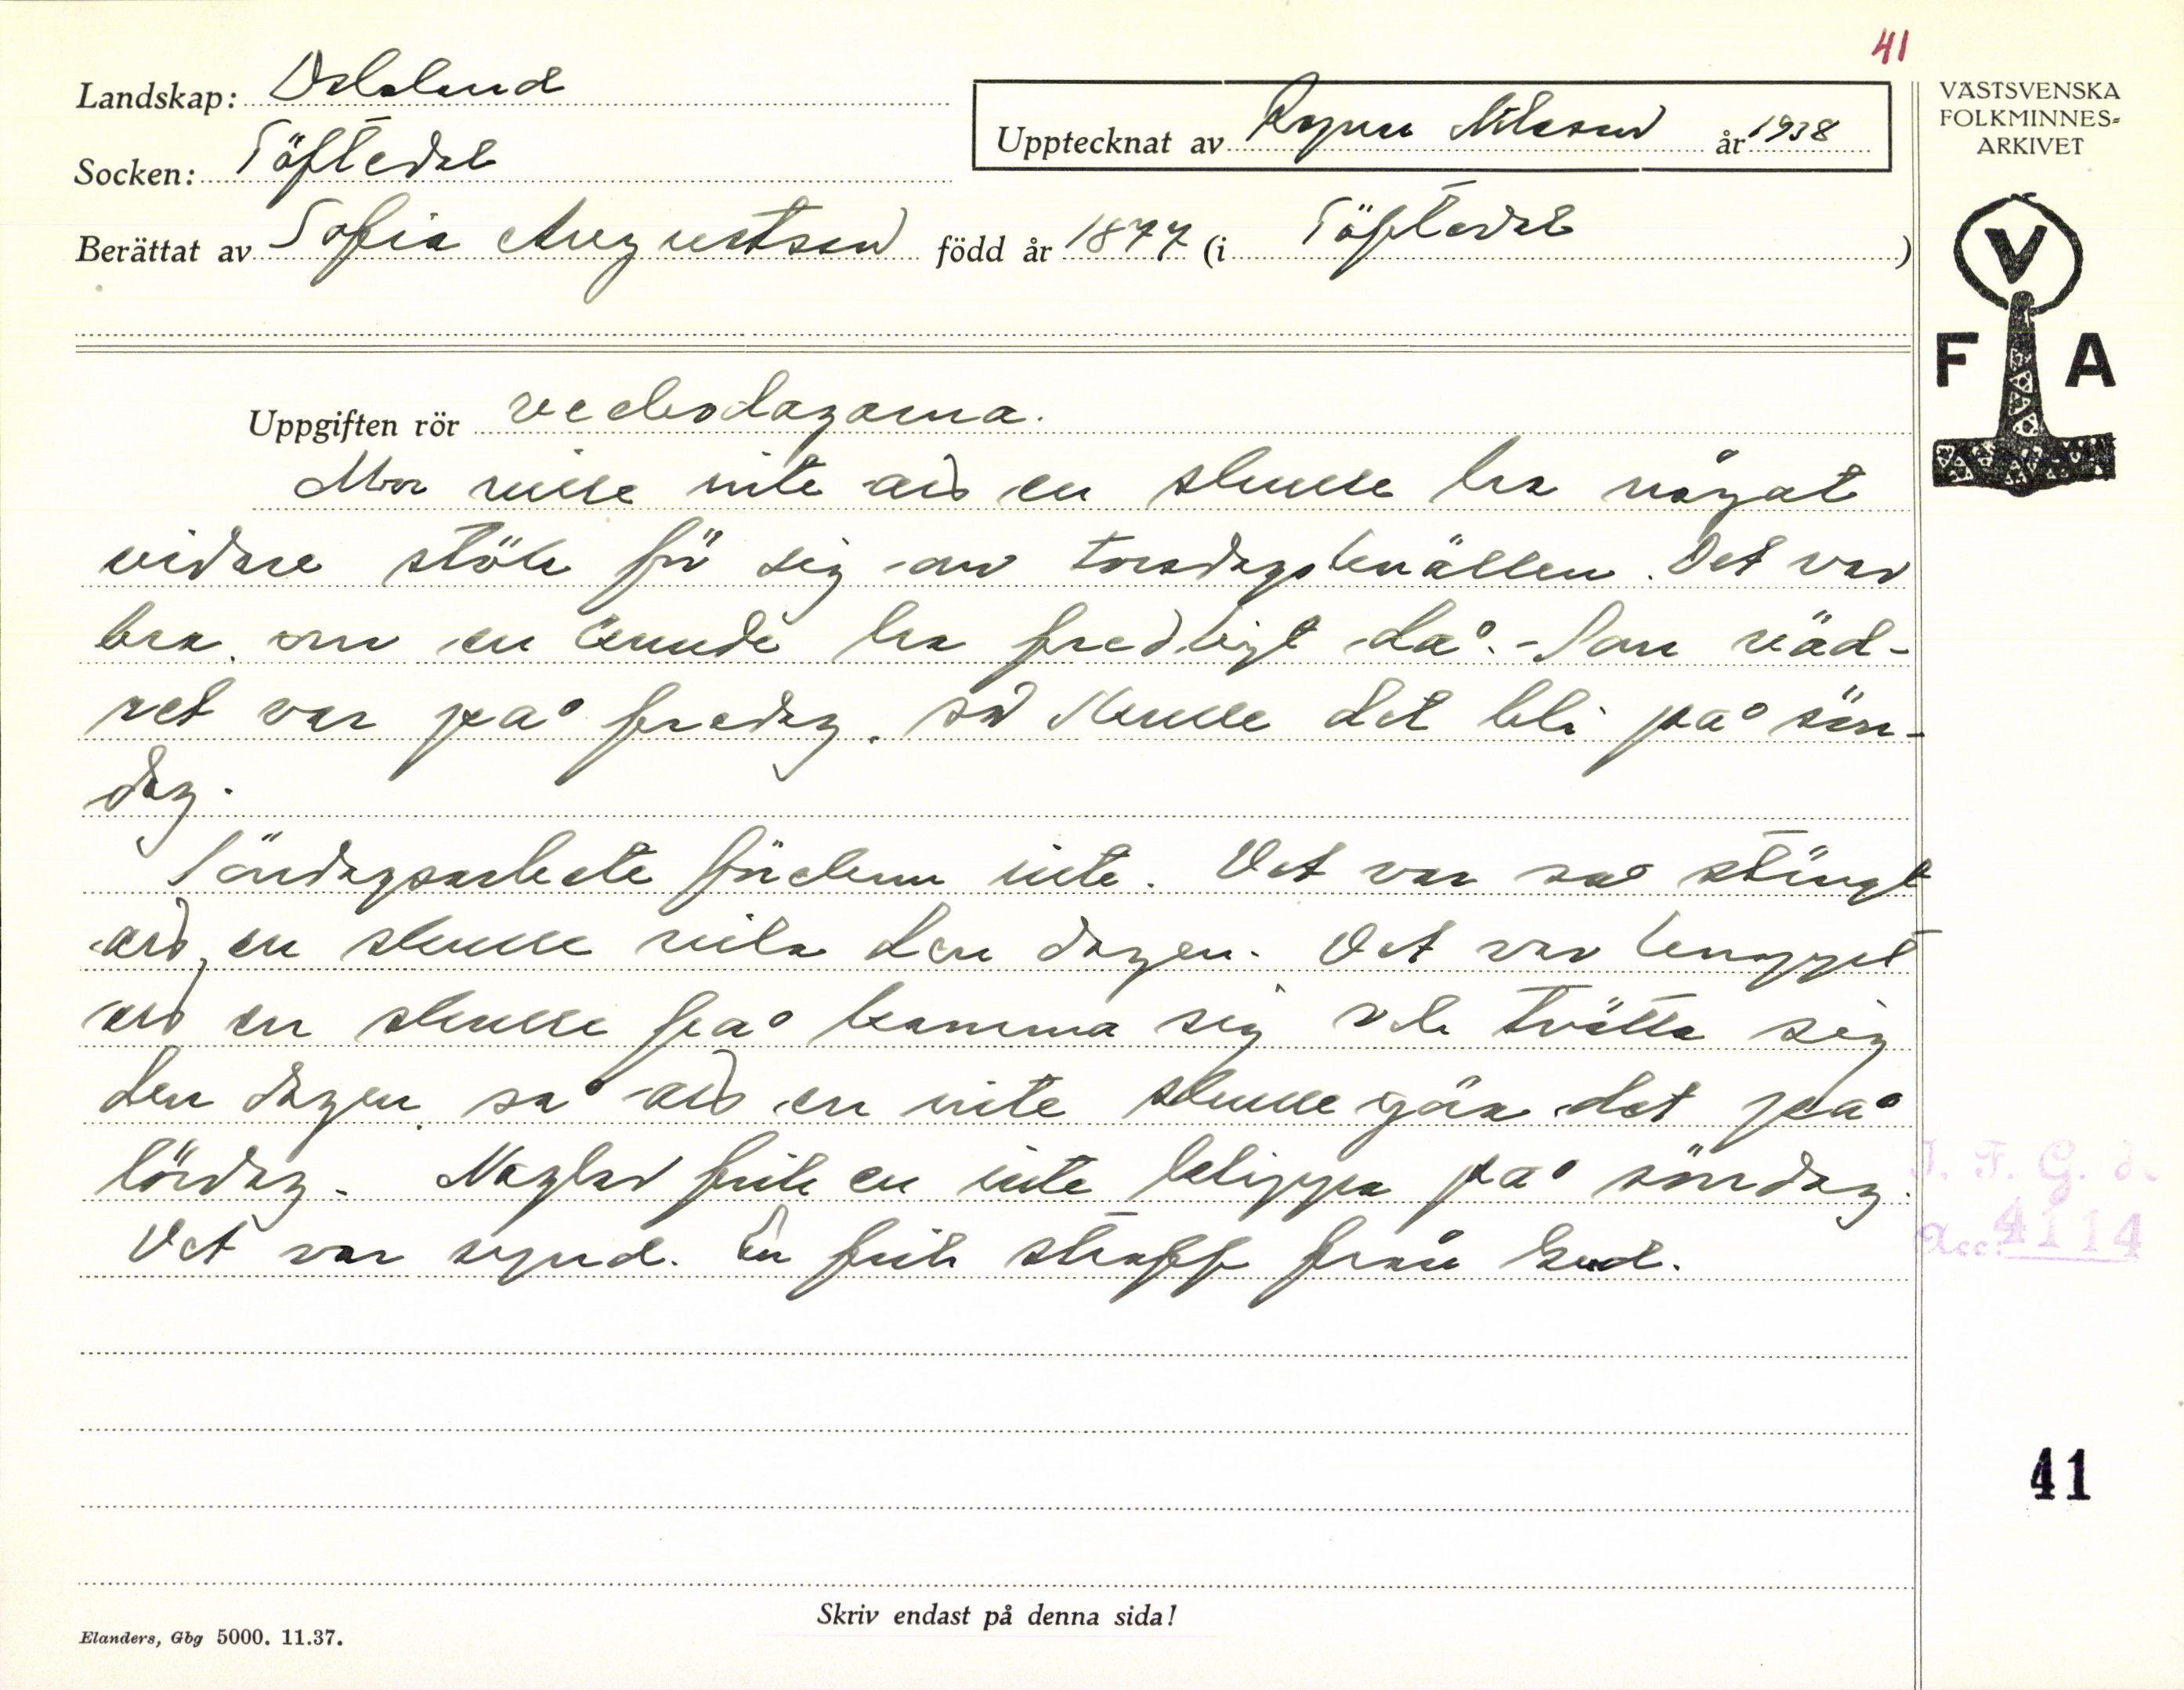 41
Landskap: Dalsland
Upptecknat av Ragnar Nilsson år 1938
VÄSTSVENSKA
FOLKMINNES-
ARKIVET
Socken: Töftedal
Berättat av Sofia Augustsson född år 1877 (i Töftedal )
V
F A
Uppgiften rör veckodagarna.
Mor ville inte att en skulle ha något
vidare stök för sig om torsdagskvällen. Det var
bra om en kunde ha fredligt då. - Som väd-
ret var på fredag, så skulle det bli på sön-
dag.
Söndagsarbete förekom inte. Det var så strängt
att en skulle vila den dagen. Det var knappt
att en skulle få kamma sig och tvätta sig
den dagen, så att en inte skulle göra det på
lördag. Naglar fick en inte klippa på söndag.
Det var synd. En fick straff från Gud.
I. F. G. s.
Acc. 4114
41
Skriv endast på denna sida!
Elanders, Gbg 5000. 11.37.